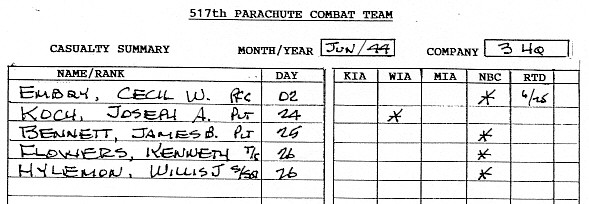 517th PARACHUTE COMBAT TEAM
CASUALTY SUMMARY MONTH/YEAR JUN/44 COMPANY 3 HQ
NAME/RANK DAY KIA WIA MIA NBC RTD
EMBRY, CECIL W. PFC 02 * 6/25
KOCH, JOSEPH A. PVT 24 *
BENNETT, JAMES B. PVT 25 *
FLOWERS, KENNETH T/5 26 *
HYLEMON, WILLIS J S/SG 26 *